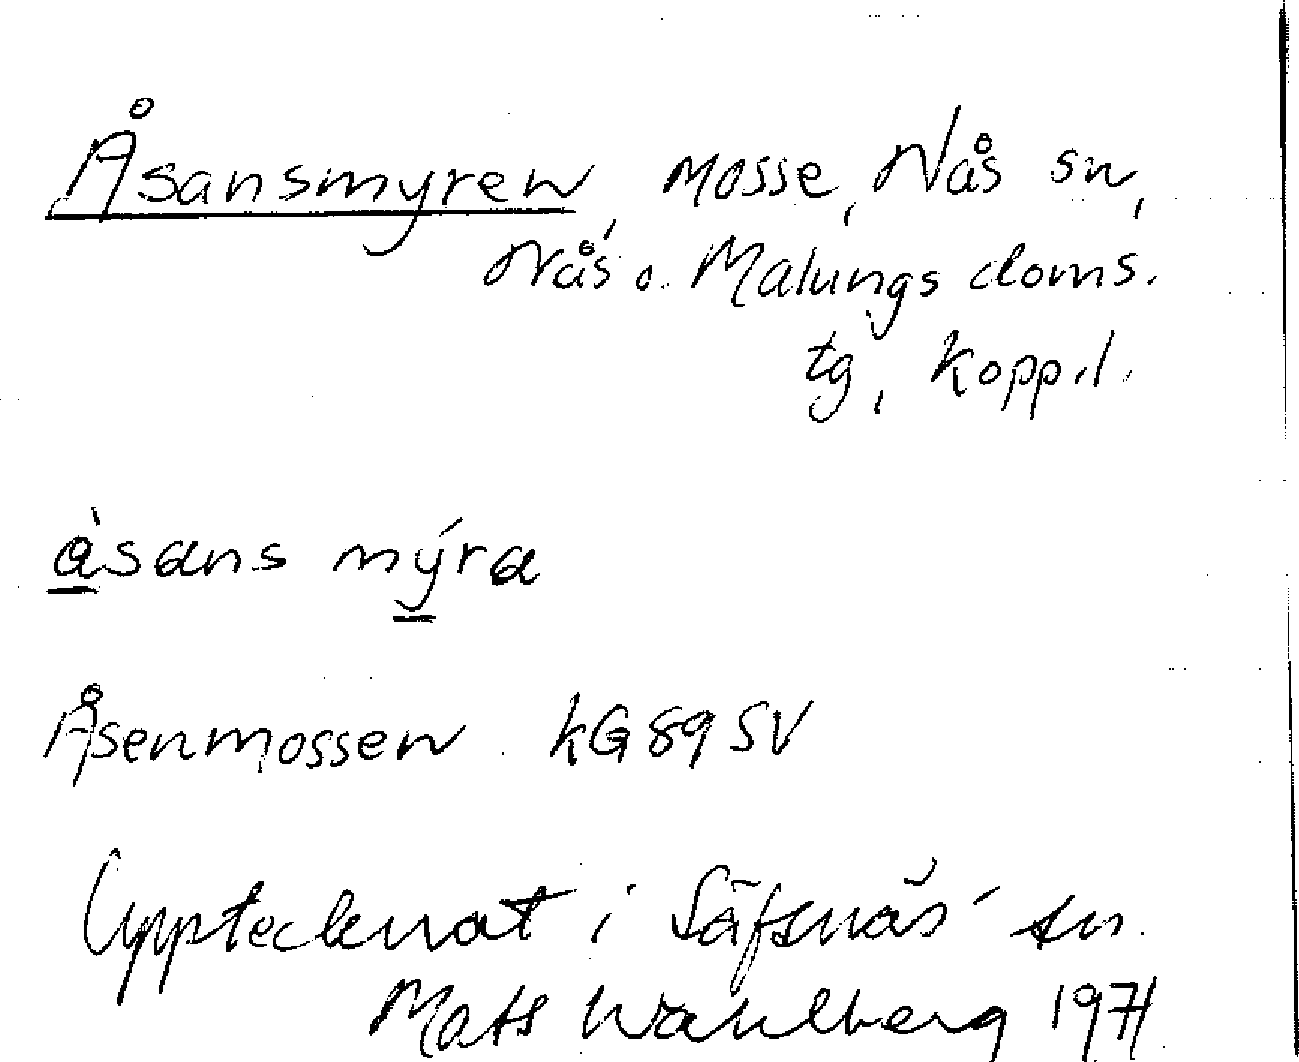 Åsansmyren, mosse, Nås sn,
Nås o. Malungs doms.
tg, Kopp.l.
åsans mýra
Åsenmossen kG 89 SV
Upptecknat i Säfsnäs sn.
Mats Wahlberg 1971